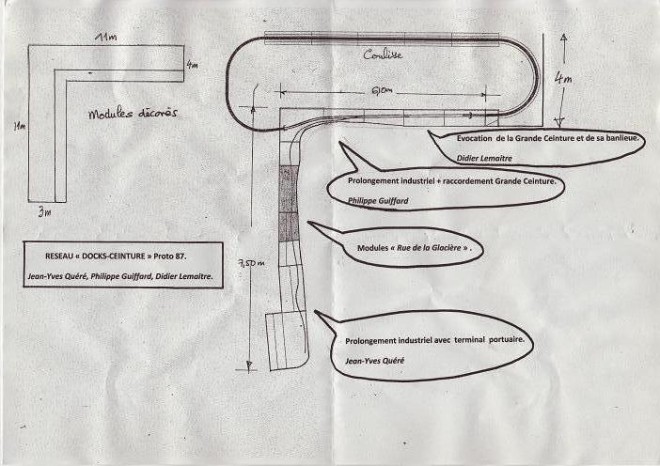 11m
4m
11m
Modules décorés
3m
Coulisse
6,0m
4m
7,50 m
Evocation de la Grande Ceinture et de sa banlieue.
Didier Lemaitre
Prolongement industriel + raccordement Grande Ceinture.
Philippe Guiffard
Modules « Rue de la Glacière » .
RESEAU « DOCKS-CEINTURE » Proto 87.
Jean-Yves Quéré, Philippe Guiffard, Didier Lemaitre.
Prolongement industriel avec terminal portuaire.
Jean-Yves Quéré